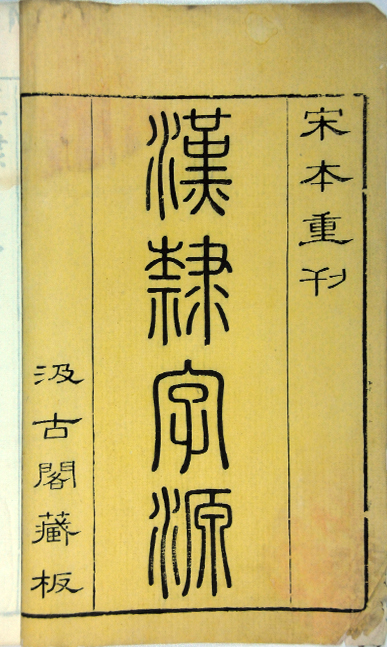 宋本重刋
漢隸字源
汲古閣藏板